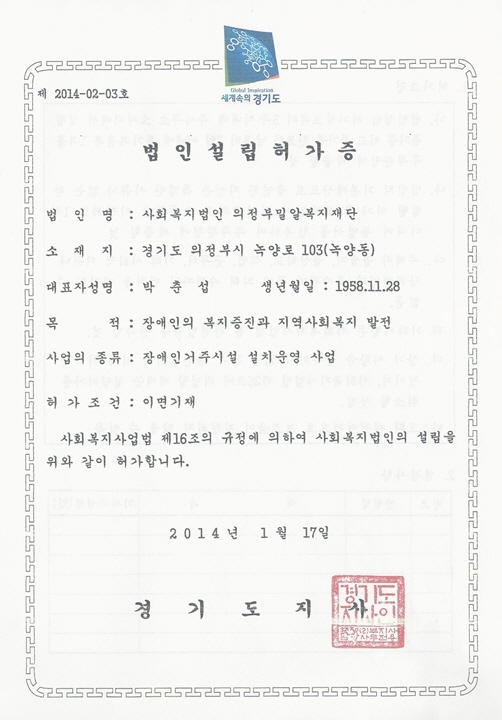 Global Inspiration
세계속의 경기도
제 2014-02-03호
법인설립허가증
법 인 명 : 사회복지법인 의정부밀알복지재단
소 재 지 : 경기도 의정부시 녹양로 103(녹양동)
대표자성명 : 박 춘 섭 생년월일 : 1958.11.28
목 적 : 장애인의 복지증진과 지역사회복지 발전
사업의 종류 : 장애인거주시설 설치운영 사업
허 가 조 건 : 이면기재
사회복지사업법 제16조의 규정에 의하여 사회복지법인의 설립을
위와 같이 허가합니다.
2014년 1월 17일
경 기 도 지 사
경기도
지사인